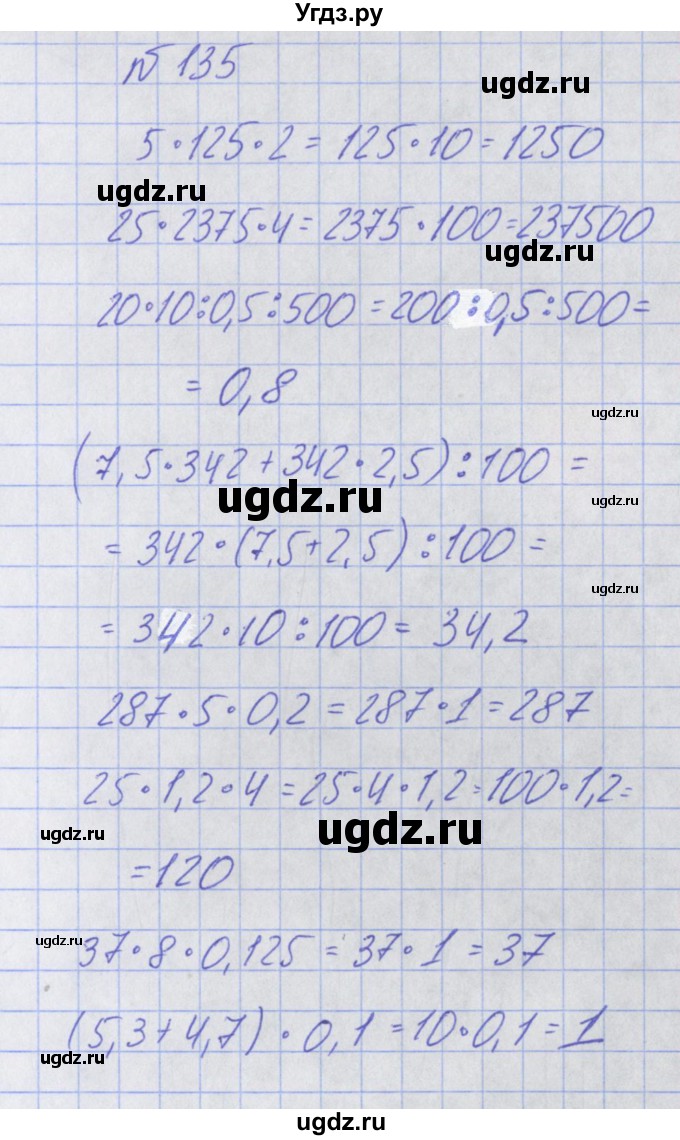 Угдз.ру
№ 135
ugdz.ru
5·125·2 = 125·10 = 1250
ugdz.ru
25·2375·4 = 2375·100 = 237500
ugdz.ru
20·10:0,5:500 = 200:0,5:500 =
= 0,8
ugdz.ru
(7,5·342+342·2,5):100 =
ugdz.ru
ugdz.ru
= 342·(7,5+2,5):100 =
ugdz.ru
= 342·10:100 = 34,2
287·5·0,2 = 287·1 = 287
25·1,2·4 = 25·4·1,2 = 100·1,2 =
ugdz.ru
ugdz.ru
= 120
ugdz.ru
37·8·0,125 = 37·1 = 37
(5,3+4,7)·0,1 = 10·0,1 = 1
ugdz.ru
ugdz.ru